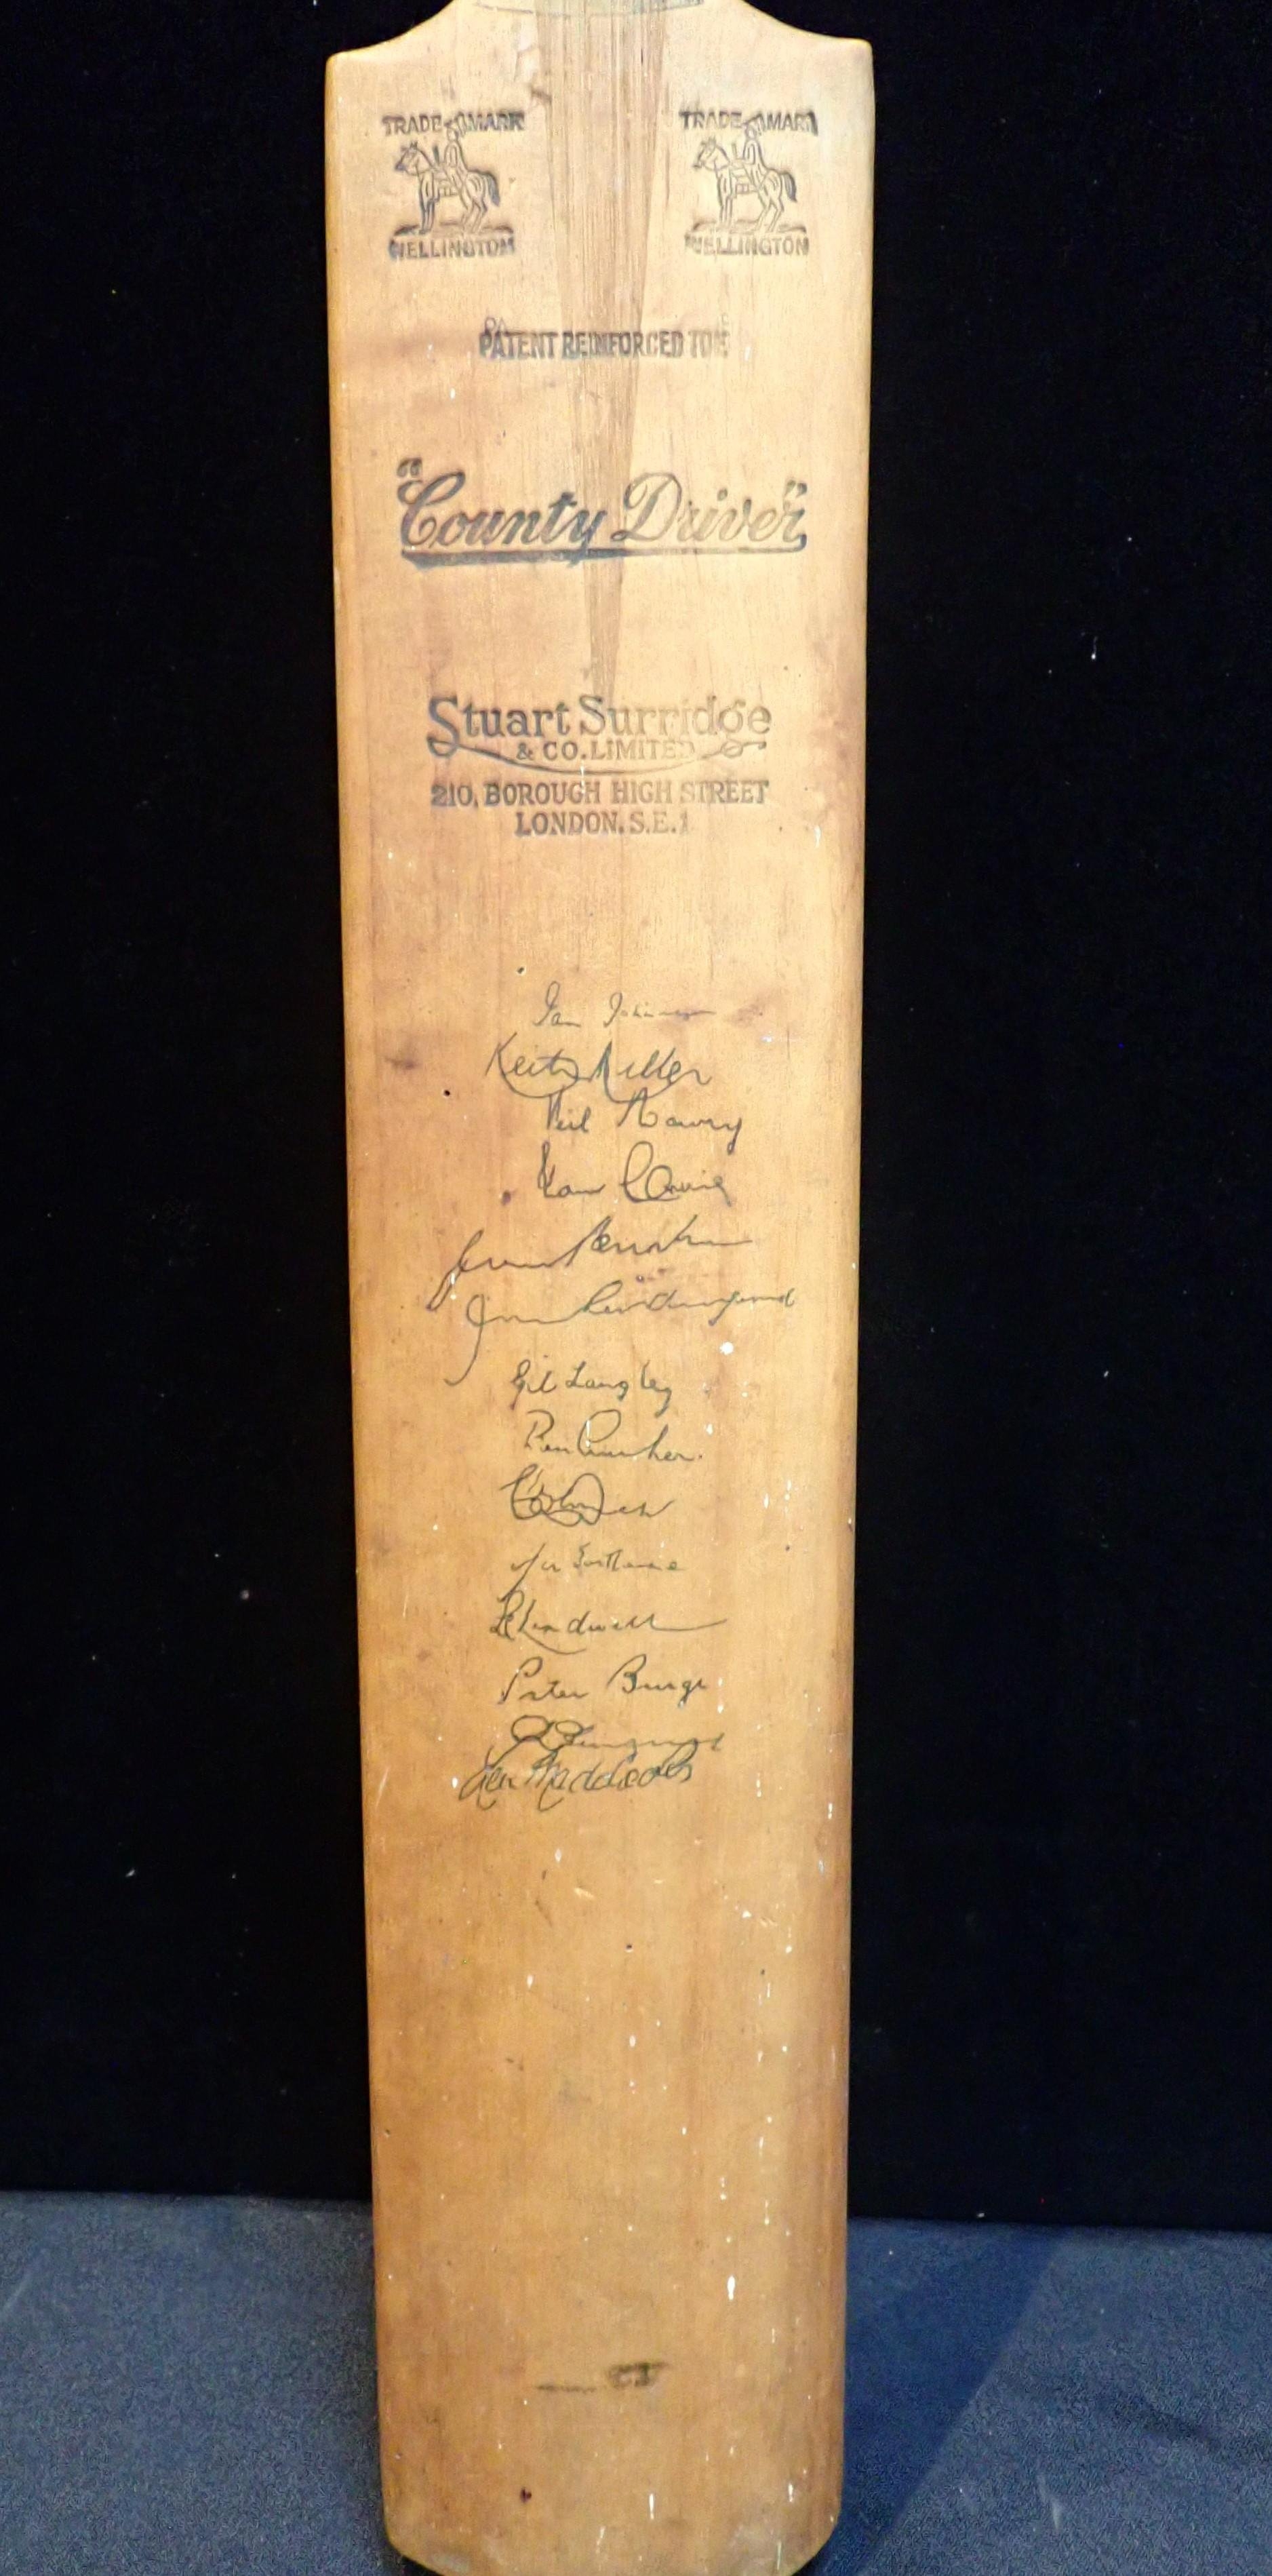 TRADE MARK TRADE MARK
WELLINGTON WELLINGTON
PATENT REINFORCED TOE
"County Driver"
Stuart Surridge
& CO. LIMITED
210, BOROUGH HIGH STREET
LONDON. S.E.1
Ian Johnson
Keith Miller
Neil Harvey
Ian Craig
Gil Langley
Ron Archer
R Lindwall
Peter Burge
Len Maddocks